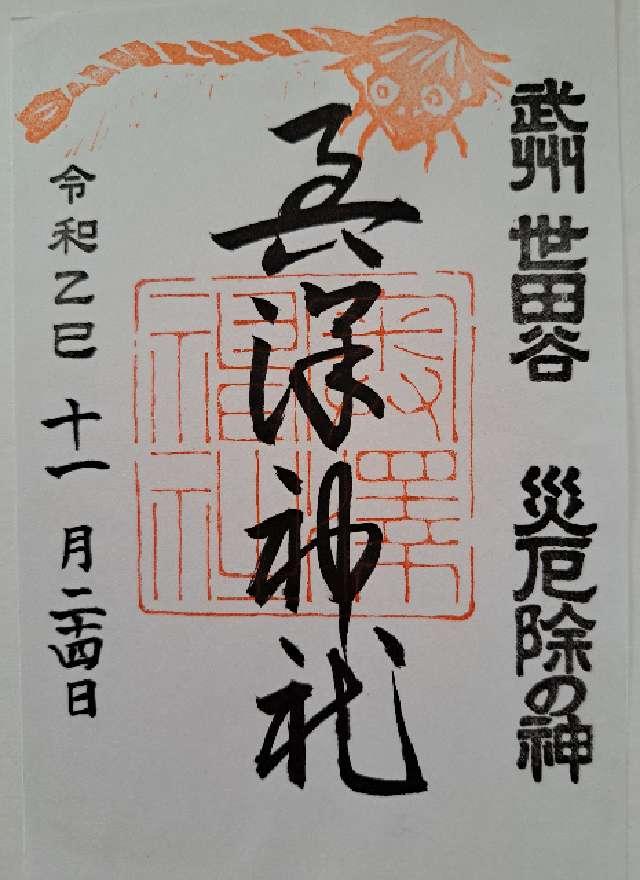 武州 世田谷 災厄除の神
奥澤神社
奥澤
神社
令和乙巳 十一月二十四日